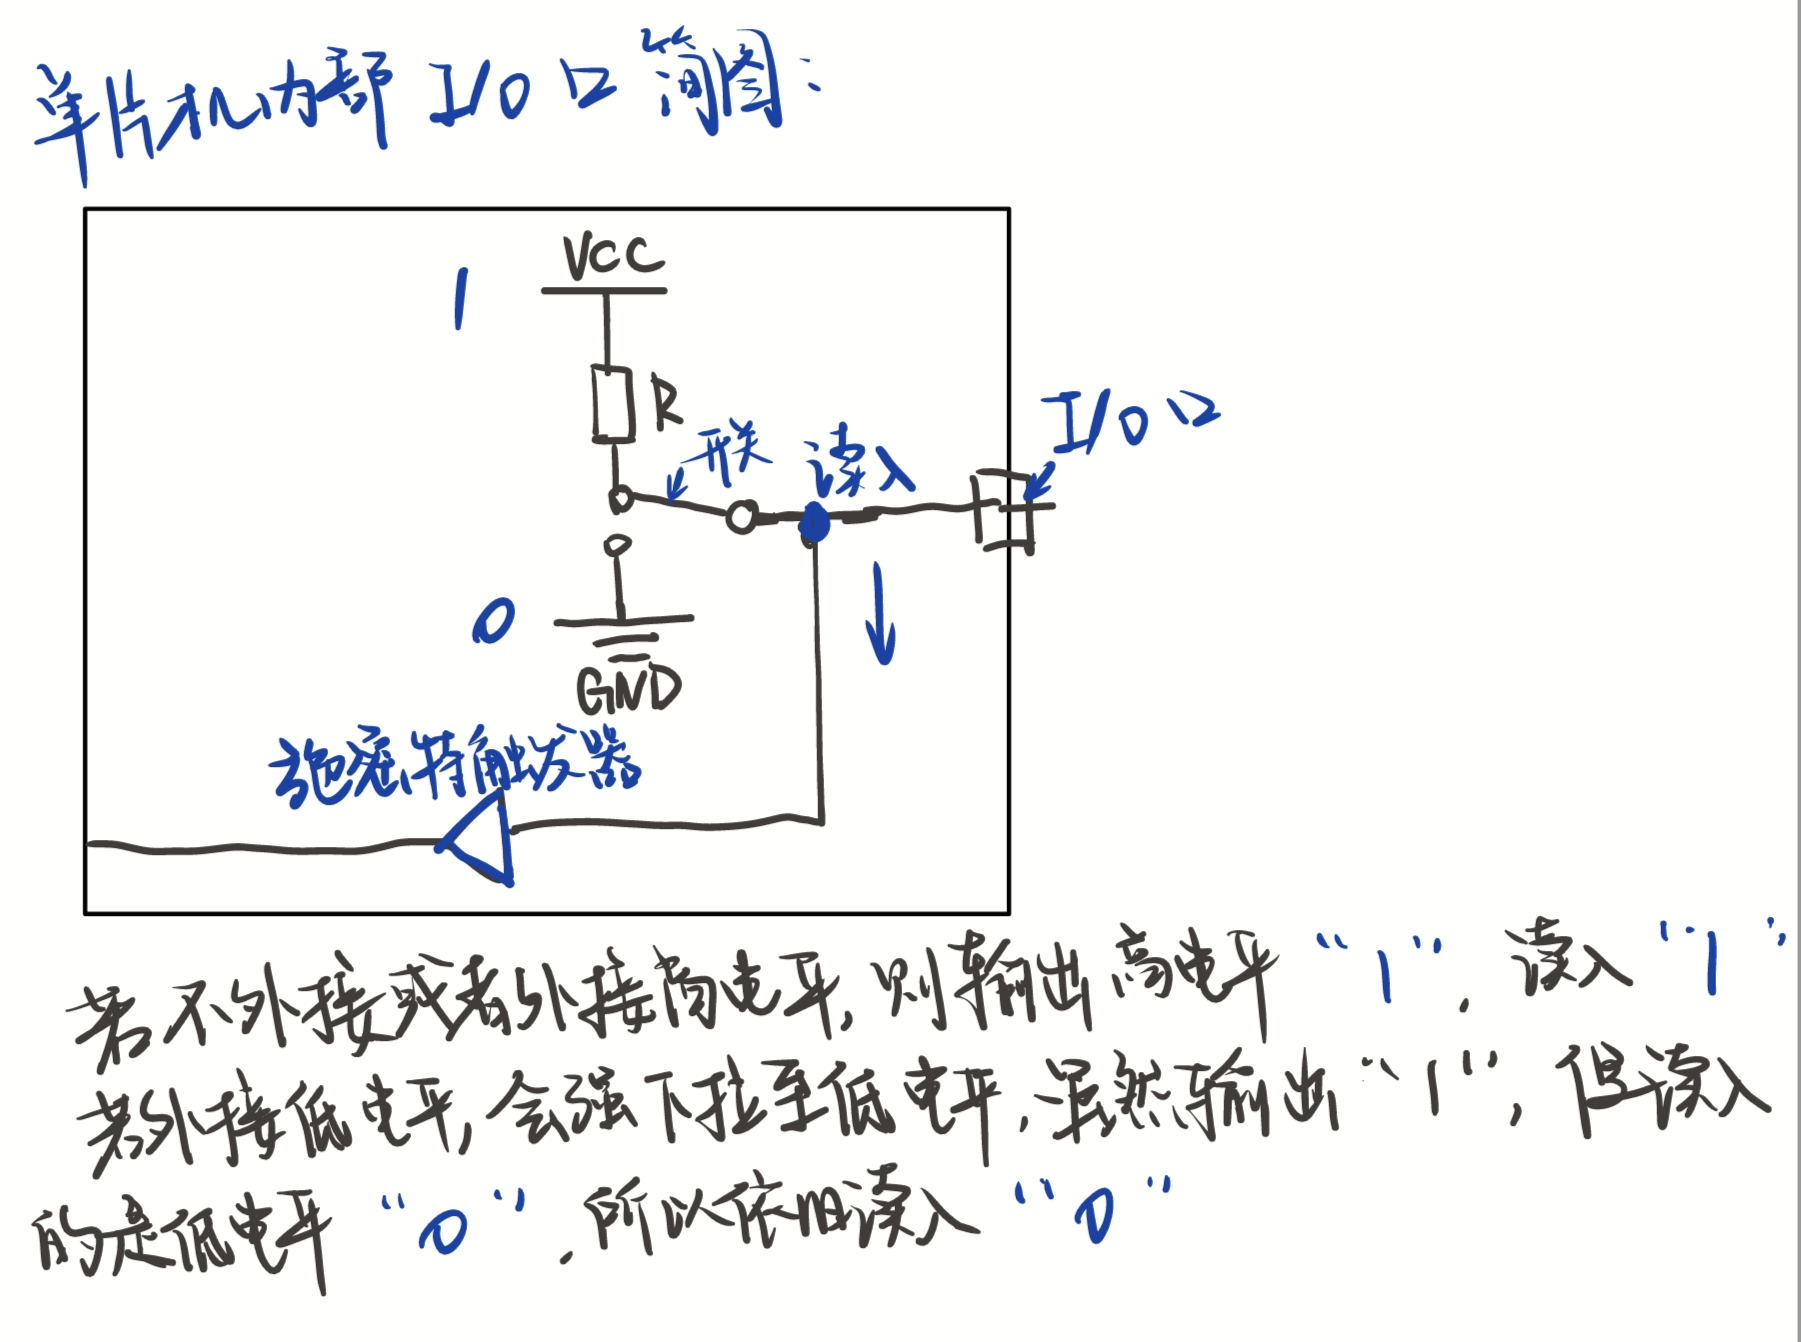 单片机内部 I/O 口 简图:
VCC
1
R
开关
读入
I/O 口
0
GND
施密特触发器
若不外接或者外接高电平,则输出高电平“1”,读入“1”
若外接低电平,会强下拉至低电平,虽然输出“1”,但读入
的是低电平“0”,所以依旧读入“0”